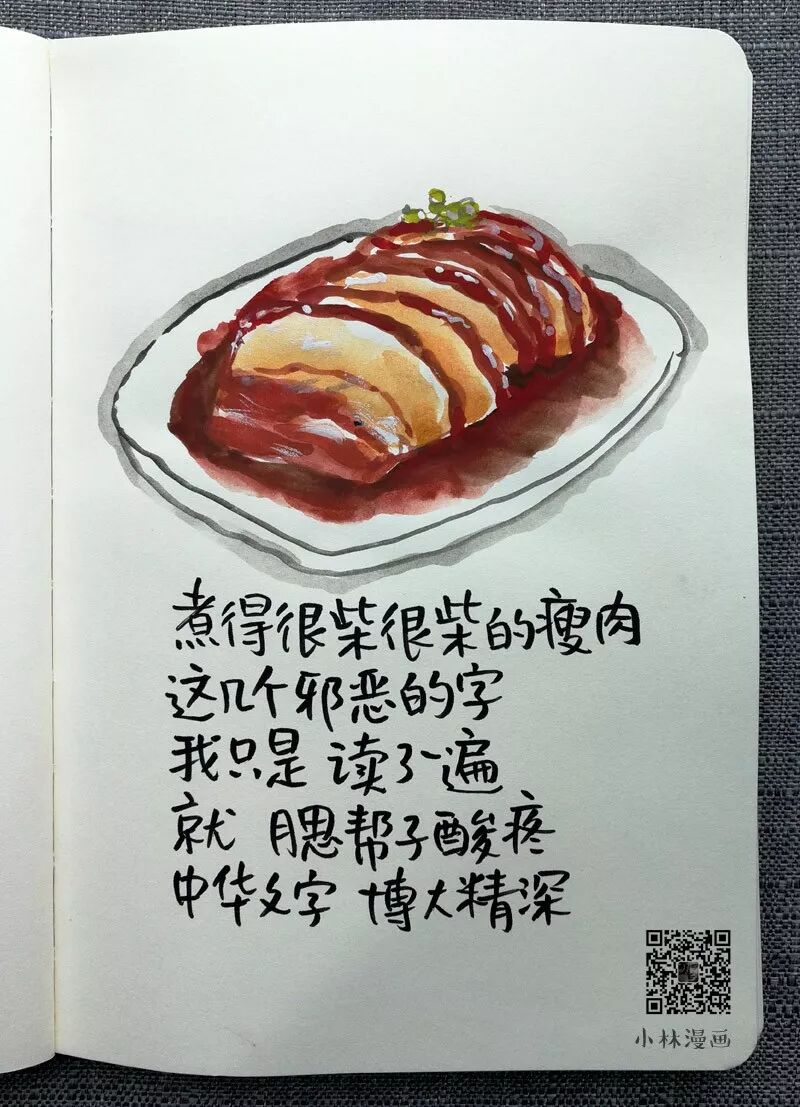 煮得很柴很柴的瘦肉
这几个邪恶的字
我只是 读了一遍
就 腮帮子酸疼
中华文字 博大精深
小林漫画